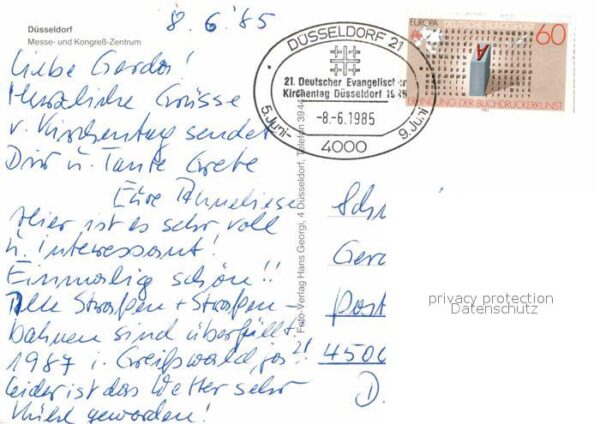 8.6.'85
Düsseldorf
Messe- und Kongreß-Zentrum
Liebe Gerda!
Herzliche Grüsse
v. Kirchentag sendet
Dir u. Tante Grete
Eure Anneliese
Hier ist es sehr voll
u. interessant!
Einmalig schön!!
Alle Straßen + Straßen-
bahnen sind überfüllt.
1987 i. Greifswald, ja?!
Leider ist das Wetter sehr
kühl geworden!
Foto-Verlag Hans Georgi, 4 Düsseldorf, Telefon 3944
DÜSSELDORF 21
21. Deutscher Evangelischer
Kirchentag Düsseldorf 1985
-8.-6.1985
5. Juni-
9. Juni
4000
EUROPA DEUTSCHE BUNDESPOST
60
A
ERFINDUNG DER BUCHDRUCKERKUNST
Sch
Gerd
Post
4500
D.
privacy protection
Datenschutz